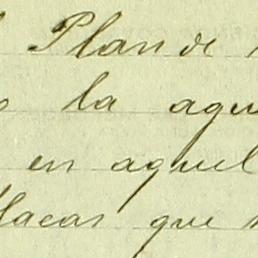 Plan de
la agu
en aquel
llacas que